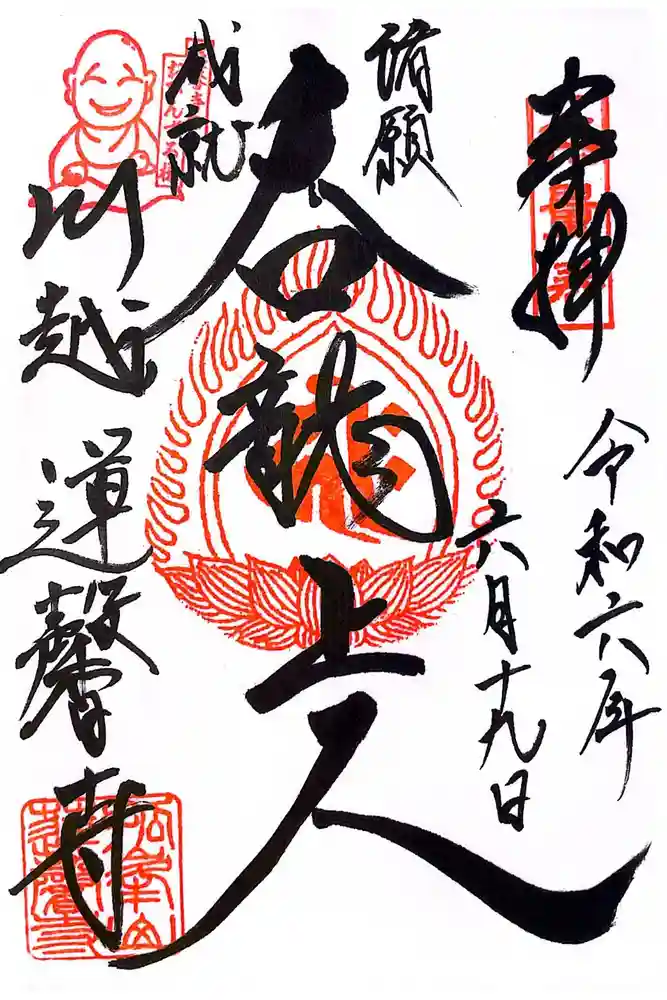 奉拝
令和六年
六月十九日
諸願
成就
呑龍上人
川越
蓮馨寺
孤峯山
蓮馨寺